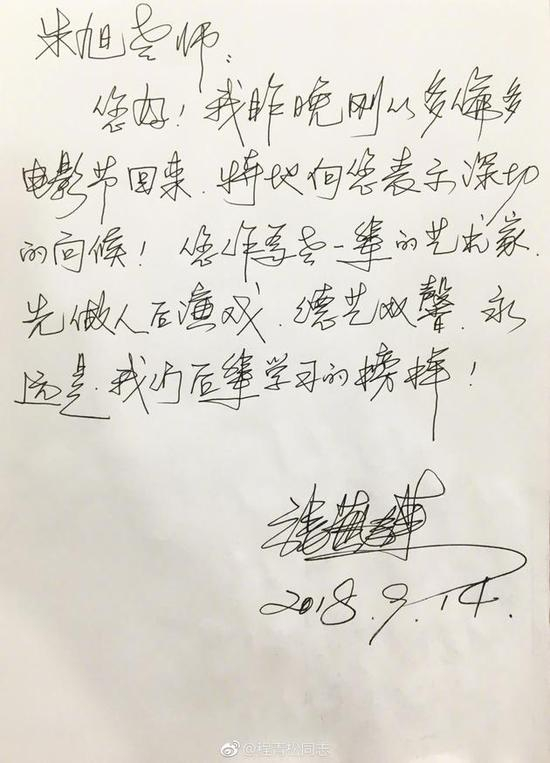 朱旭老师:
您好！我昨晚刚从多伦多
电影节回来.特地向您表示深切
的问候！您作为老一辈的艺术家.
先做人后演戏.德艺双馨.永
远是我们后辈学习的榜样！
2018.9.14.
@程青松同志